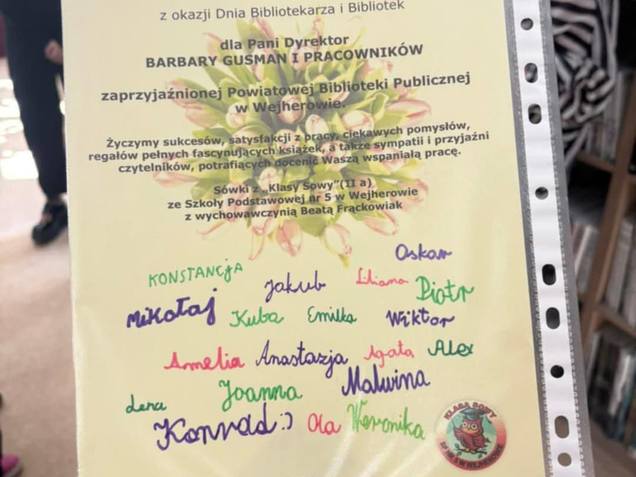 z okazji Dnia Bibliotekarza i Bibliotek
dla Pani Dyrektor
BARBARY GUSMAN I PRACOWNIKÓW
zaprzyjaźnionej Powiatowej Biblioteki Publicznej
w Wejherowie.
Życzymy sukcesów, satysfakcji z pracy, ciekawych pomysłów,
regałów pełnych fascynujących książek, a także sympatii i przyjaźni
czytelników, potrafiących docenić Waszą wspaniałą pracę.
Sówki z „Klasy Sowy”(II a)
ze Szkoły Podstawowej nr 5 w Wejherowie
z wychowawczynią Beatą Frąckowiak
Oskar
KONSTANCJA Jakub Liliana Piotr
Mikołaj Kuba Emilka Wiktor
Amelia Anastazja Agata Alex
Lena Joanna Malwina
Konrad :) Ola Weronika
KLASA SOWY